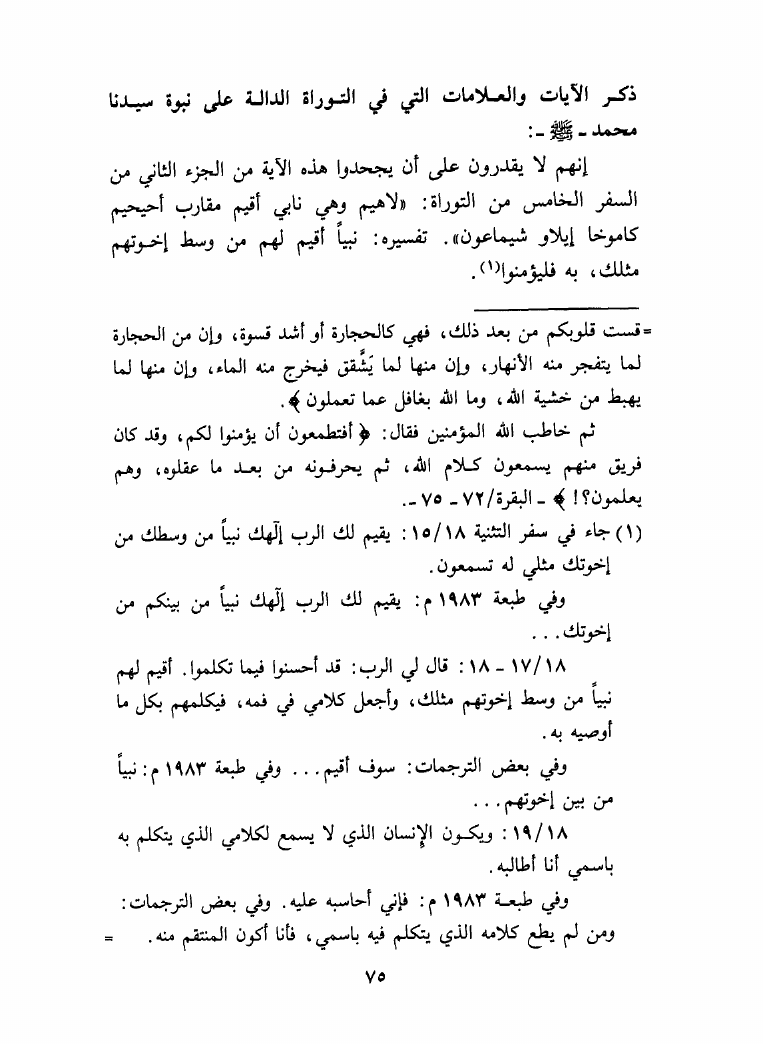 ذكر الآيات والعلامات التي في التوراة الدالة على نبوة سيدنا
محمد - ﷺ -:
إنهم لا يقدرون على أن يجحدوا هذه الآية من الجزء الثاني من
السفر الخامس من التوراة: «لاهيم وهي نابي أقيم مقارب أحيحيم
كاموخا إيلاو شيماعون». تفسيره: نبياً أقيم لهم من وسط إخوتهم
مثلك، به فليؤمنوا(١).
=قست قلوبكم من بعد ذلك، فهي كالحجارة أو أشد قسوة، وإن من الحجارة
لما يتفجر منه الأنهار، وإن منها لما يَشَّقق فيخرج منه الماء، وإن منها لما
يهبط من خشية الله، وما الله بغافل عما تعملون ﴾.
ثم خاطب الله المؤمنين فقال: ﴿ أفتطمعون أن يؤمنوا لكم، وقد كان
فريق منهم يسمعون كلام الله، ثم يحرفونه من بعد ما عقلوه، وهم
يعلمون؟! ﴾ - البقرة/٧٢ - ٧٥ -.
(١) جاء في سفر التثنية ١٥/١٨: يقيم لك الرب إلٓهك نبياً من وسطك من
إخوتك مثلي له تسمعون.
وفي طبعة ١٩٨٣ م: يقيم لك الرب إلٓهك نبياً من بينكم من
إخوتك...
١٧/١٨ - ١٨: قال لي الرب: قد أحسنوا فيما تكلموا. أقيم لهم
نبياً من وسط إخوتهم مثلك، وأجعل كلامي في فمه، فيكلمهم بكل ما
أوصيه به.
وفي بعض الترجمات: سوف أقيم... وفي طبعة ١٩٨٣ م: نبياً
من بين إخوتهم...
١٩/١٨: ويكون الإنسان الذي لا يسمع لكلامي الذي يتكلم به
باسمي أنا أطالبه.
وفي طبعة ١٩٨٣ م: فإني أحاسبه عليه. وفي بعض الترجمات:
ومن لم يطع كلامه الذي يتكلم فيه باسمي، فأنا أكون المنتقم منه. =
٧٥